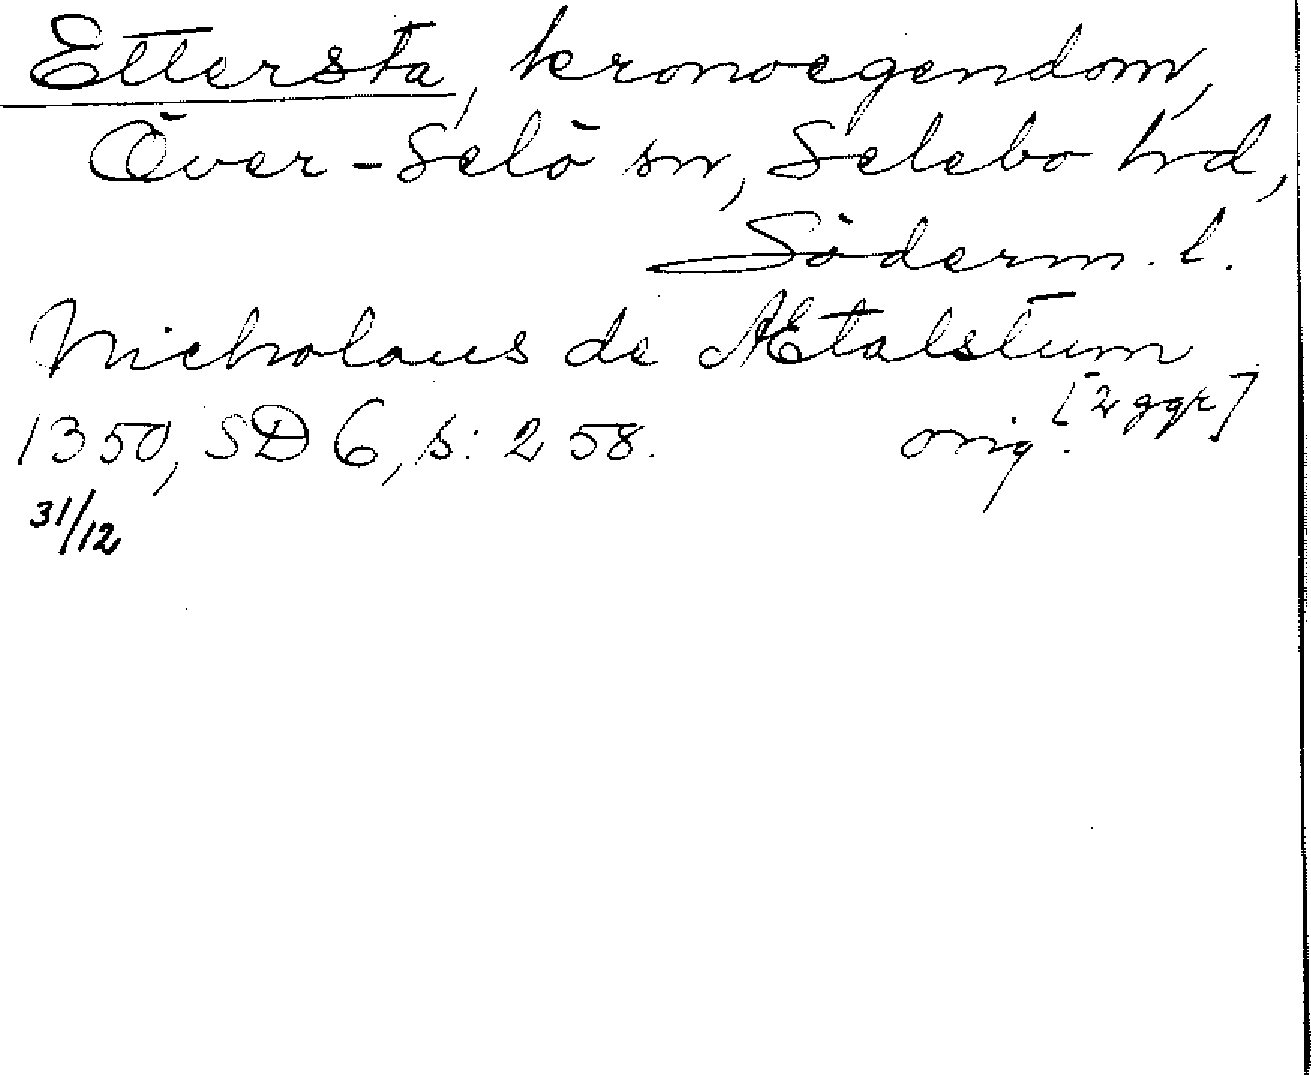 Ettersta, kronoegendom,
Över-Selö sn, Selebo hd,
Söderm. l.
Nicholaus de Ætalstum
[2 ggr]
1350, SD 6, s: 258. orig.
31/12